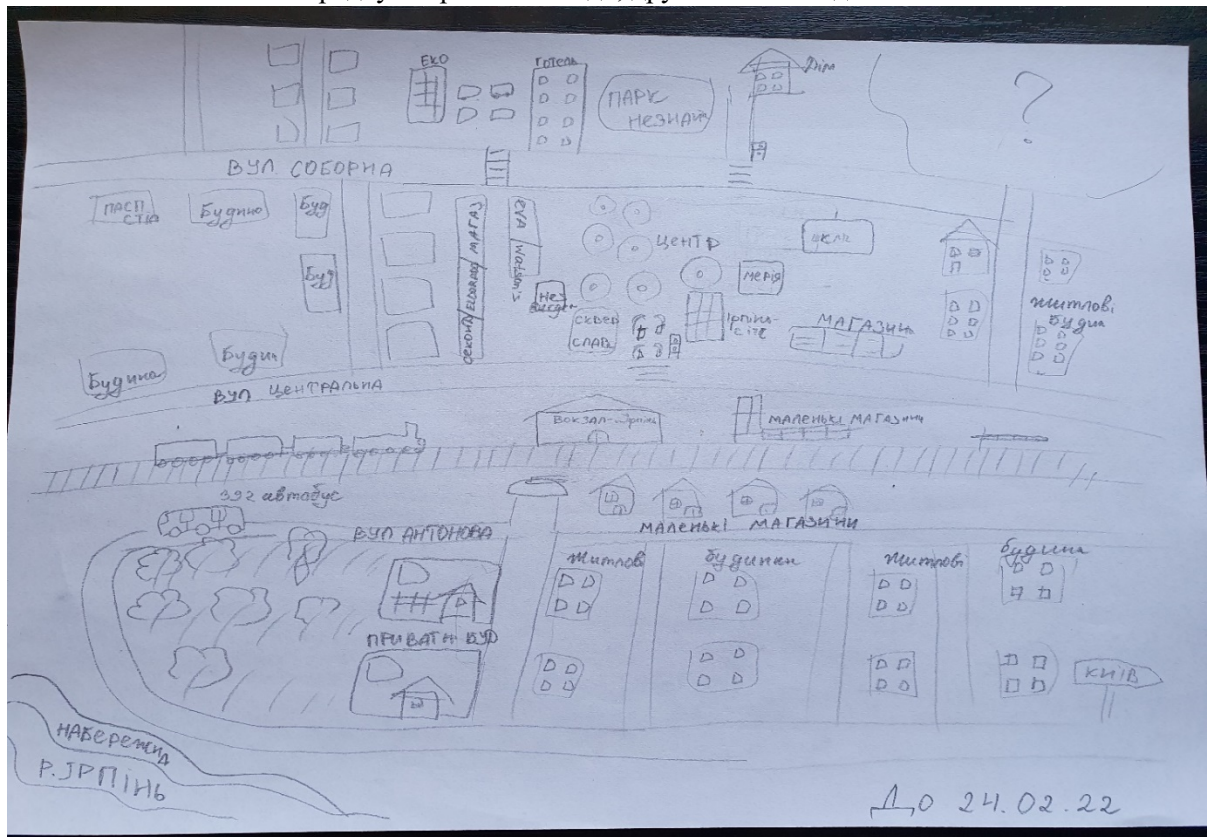 ЕКО
ГОТЕЛЬ
Дім
ПАРК
НЕЗНАЙ
?
ВУЛ СОБОРНА
ПАСП
СТІЛ
Будино
Буд
Буд
МАГАЗ
ELDORADO
СЕКОНД
EVA
Watson's
ЦЕНТР
МЕРІЯ
Ірпінь-
сіті
СКВЕР
СЛАВ
МАГАЗИНИ
ЖИТЛОВІ
БУДИН
Будин
Будинки
ВУЛ ЦЕНТРАЛЬНА
ВОКЗАЛ-Ірпінь
МАЛЕНЬКІ МАГАЗИНИ
392 автобус
ВУЛ АНТОНОВА
МАЛЕНЬКІ МАГАЗИНИ
Житлові
будинки
Житлові
будинки
ПРИВАТН БУД
КИЇВ
НАБЕРЕЖНА
Р. ІРПІНЬ
ДО 24.02.22